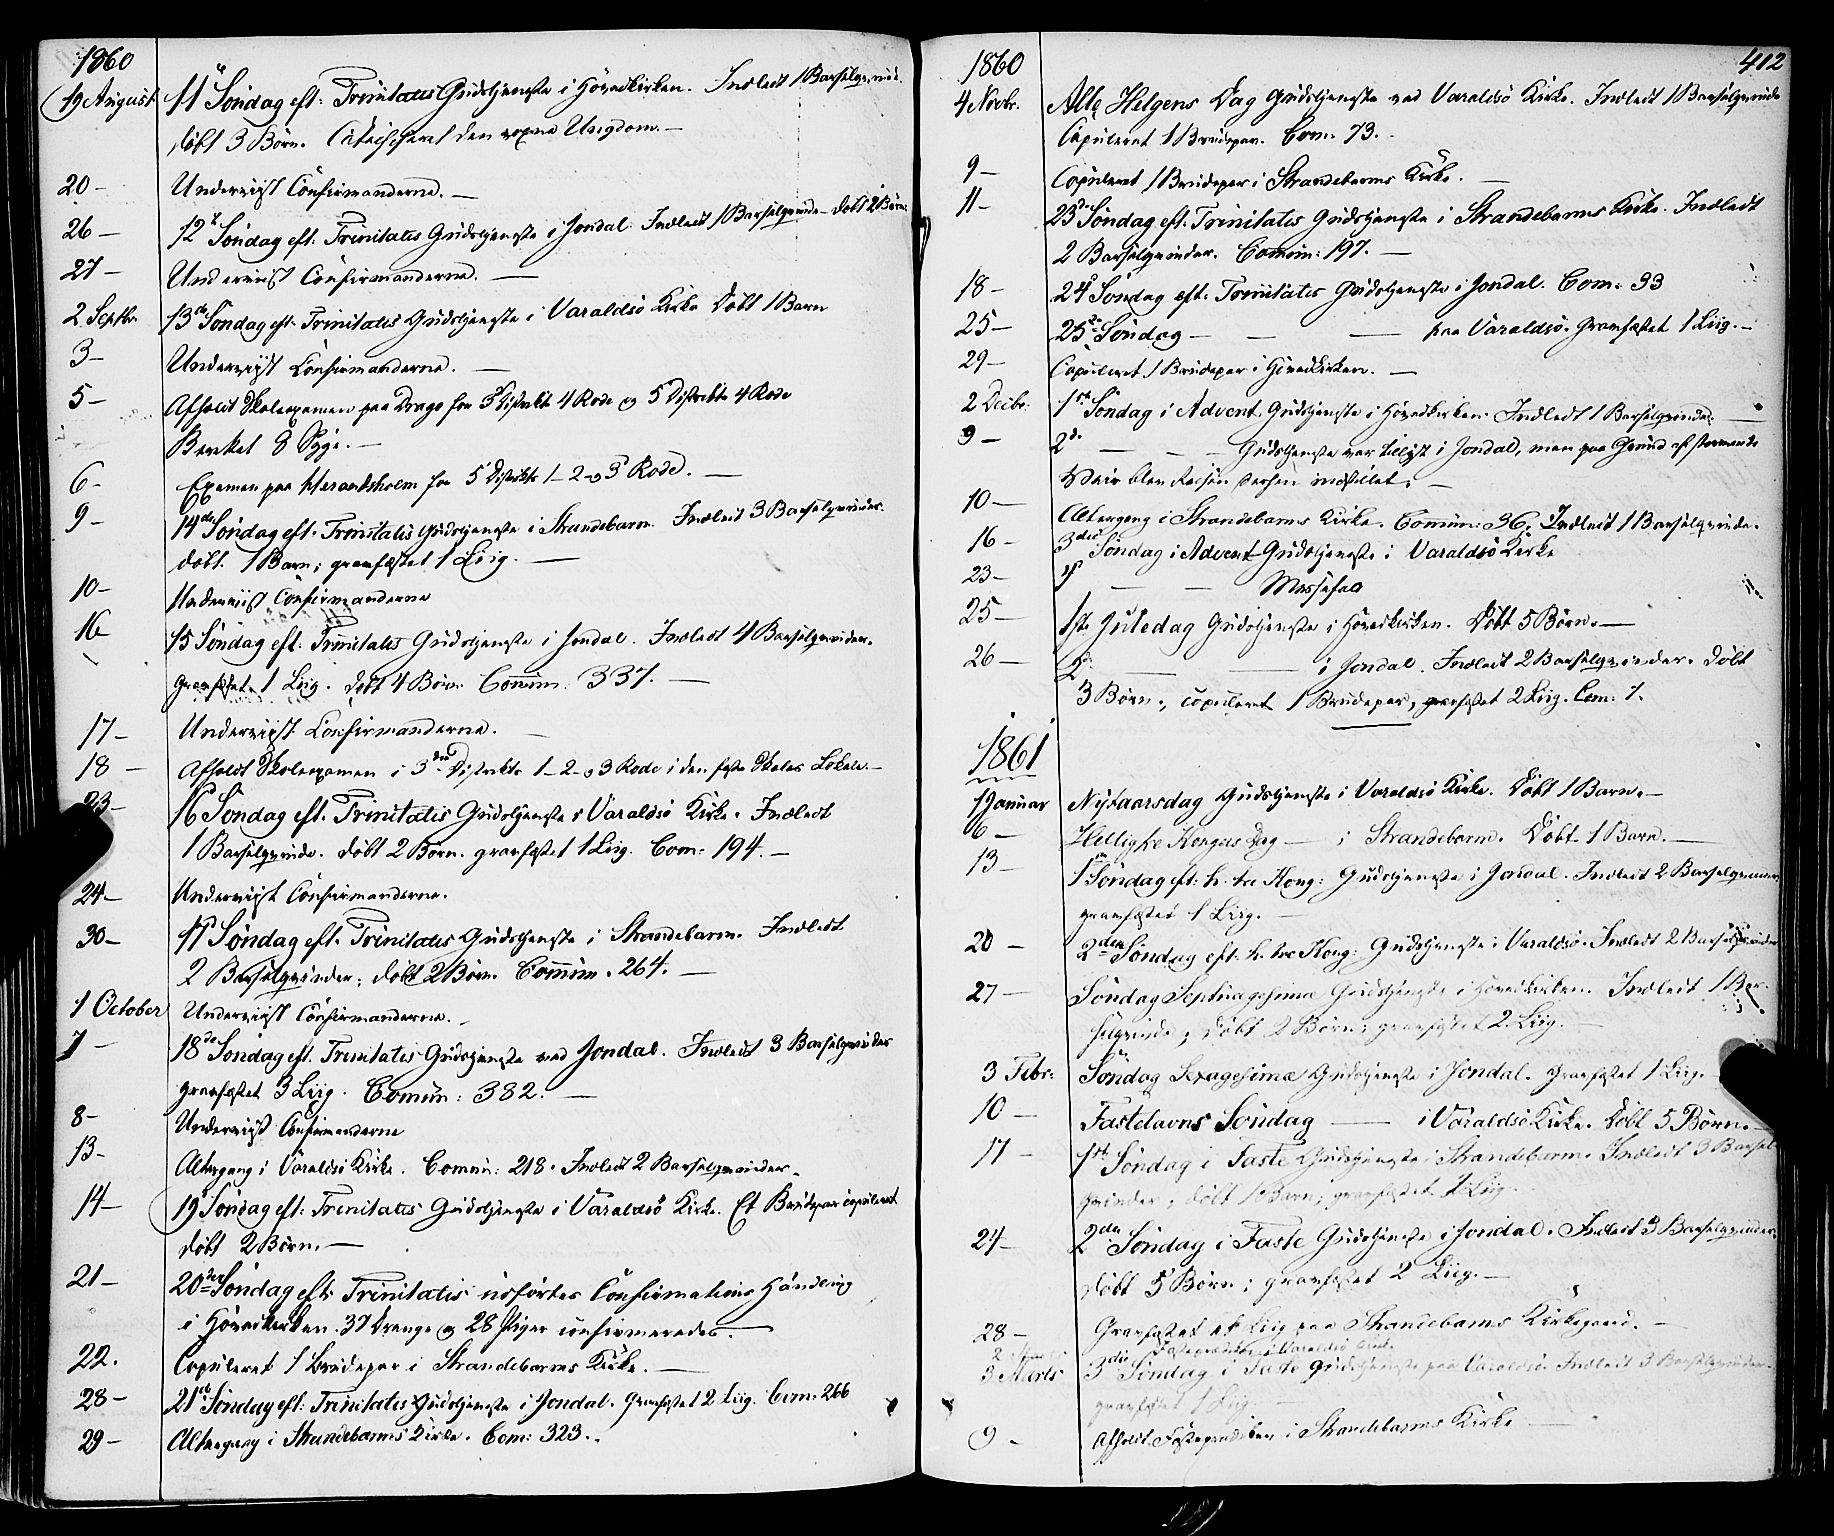 1860
19 August 11te Søndag eft: Trinitatis Gudstjeneste i Hovedkirken. Indledt 1 Barselqvinde.
døbt 3 Børn. Catechiseret den voxne Ungdom.—
20— Underviist Confirmanderne.—
26— 12te Søndag eft: Trinitatis Gudstjeneste i Jondal. Indledt 1 Barselqvinde— døbt 2 Børn.
27— Underviist Confirmanderne.—
2 Septbr. 13de Søndag eft: Trinitatis Gudstjeneste i Varaldsö Kirke Døbt 1 Barn
3— Underviist Confirmanderne.—
5— Afholdt Skoleexamen paa Drage for 3 Distrikts 4 Rode og 5 Distrikts 4 Rode
Besøket 8 Syge.—
6— Examen paa Herandsholm for 5 Distrikts 1—2 og 3 Rode.—
9— 14de Søndag eft: Trinitatis Gudstjeneste i Strandebarm. Indledt 3 Barselqvinder.
døbt 1 Barn; gravfæstet 1 Liig.—
10— Underviist Confirmanderne
16— 15 Søndag eft: Trinitatis Gudstjeneste i Jondal. Indledt 4 Barselqvinder.
gravfæstet 1 Liig. døbt 4 Børn Commun: 337.—
17— Underviist Confirmanderne.—
18— Afholdt Skoleexamen i 3die Distrikts 1—2—og 3 Rode i den faste Skoles Lokale.—
23— 16 Søndag eft. Trinitatis Gudstjeneste i Varaldsö Kirke. Indledt
1 Barselqvinde. døbt 2 Børn. gravfæstet 1 Liig. Com: 194.—
24— Underviist Confirmanderne.
30— 17 Søndag eft. Trinitatis Gudstjeneste i Strandebarm. Indledt
2 Barselqvinder; døbt 2 Børn. Commun. 264.—
1 October Underviist Confirmanderne.
7— 18de Søndag eft. Trinitatis Gudstjeneste ved Jondal. Indledt 3 Barselqvinder
gravfæstet 3 Liig. Commun: 382.—
8— Underviist Confirmanderne
13— Altergang i Varaldsö Kirke. Commun: 218. Indledt 2 Barselqvinder.
14— 19 Søndag eft: Trinitatis Gudstjeneste i Varaldsö Kirke. Et Brudepar copuleret
døbt 2 Børn.—
21— 20de Søndag eft: Trinitatis udførtes Confirmations Handling
i Hovedkirken. 37 Drenge og 28 Piger confirmeredes.—
22. Copuleret 1 Brudepar i Strandebarms Kirke.—
28— 21de Søndag eft: Trinitatis Gudstjeneste i Jondal. Gravfæstet 2 Liig. Com: 266
29— Altergang i Strandebarms Kirke. Com: 323.
1860 412
4 Novbr. Alle Helgens Dag Gudstjeneste ved Varaldsö Kirke. Indledt 1 Barselqvinde
Copuleret 1 Brudepar. Com: 73.
9— Copuleret 1 Brudepar i Strandebarms Kirke.—
11— 23de Søndag eft: Trinitatis Gudstjeneste i Strandebarms Kirke. Indledt
2 Barselqvinder. Commun: 197.—
18— 24de Søndag eft: Trinitatis Gudstjeneste i Jondal. Com: 33
25— 25de Søndag— — — paa Varaldsö. Gravfæstet 1 Liig.—
29— Copuleret 1 Brudepar i Hovedkirken.—
2 Decbr. 1ste Søndag i Advent Gudstjeneste i Hovedkirken. Indledt 1 Barselqvinde.
9— 2d — — — Gudstjeneste var tillyst i Jondal, men paa Grund af stormende
Veir blev Reisen dertil indstillet.—
10— Altergang i Strandebarms Kirke. Commun: 36. Indledt 1 Barselqvinde.
16— 3die Søndag i Advent Gudstjeneste i Varaldsö Kirke
23— 4 — — Messefald
25— 1ste Juledag Gudstjeneste i Hovedkirken. Døbt 5 Børn.—
26— 2d — i Jondal. Indledt 2 Barselqvinder. Døbt
3 Børn., copuleret 1 Brudepar, gravfæstet 2 Liig. Com: 7.
1861
1 Januar Nytaarsdag Gudstjeneste i Varaldsö Kirke. Døbt 1 Barn.—
6— Hellig tre Kongers Dag— i Strandebarm. Døbt 1 Barn.—
13— 1ste Søndag eft: h. tre Kong: Gudstjeneste i Jondal. Indledt 2 Barselqvinder
gravfæstet 1 Liig.—
20— 2den Søndag eft: h. tre Kong: Gudstjeneste i Varaldsö. Indledt 2 Barselqvinder
27— Søndag Septuagesima Gudstjeneste i Hovedkirken. Indledt 1 Bar-
selqvinde; Døbt 2 Børn; gravfæstet 2 Liig.—
3 Febr: Søndag Sexagesima Gudstjeneste i Jondal. Gravfæstet 1 Liig.
10— Fastelavns Søndag — i Varaldsö Kirke. Døbt 5 Børn.—
17— 1ste Søndag i Faste Gudstjeneste i Strandebarm. Indledt 3 Barsel-
qvinder; døbt 1 Barn; gravfæstet 1 Liig.
24— 2den Søndag i Faste Gudstjeneste i Jondal. Indledt 3 Barselqvinder.
Døbt 5 Børn; gravfæstet 2 Liig.—
28— Gravfæstet et Liig paa Strandebarms Kirkegaard.—
2 Fasteprædiken i Varaldsö Kirke
3 Marts 3die Søndag i Faste Gudstjeneste paa Varaldsö. Indledt 3 Barselqvinder.
gravfæstet 1 Liig.—
9— Afholdt Fasteprædiken i Strandebarms Kirke—